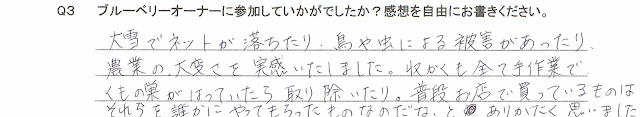 Q3 ブルーベリーオーナーに参加していかがでしたか？感想を自由にお書きください。
大雪でネットが落ちたり、鳥や虫による被害があったり、
農業の、大変さを実感いたしました。収かくも全て手作業で
くもの巣がはっていたら取り除いたり。普段お店で買っているものは
それらを誰かにやってもらったものなのだな、と ありがたく思いました